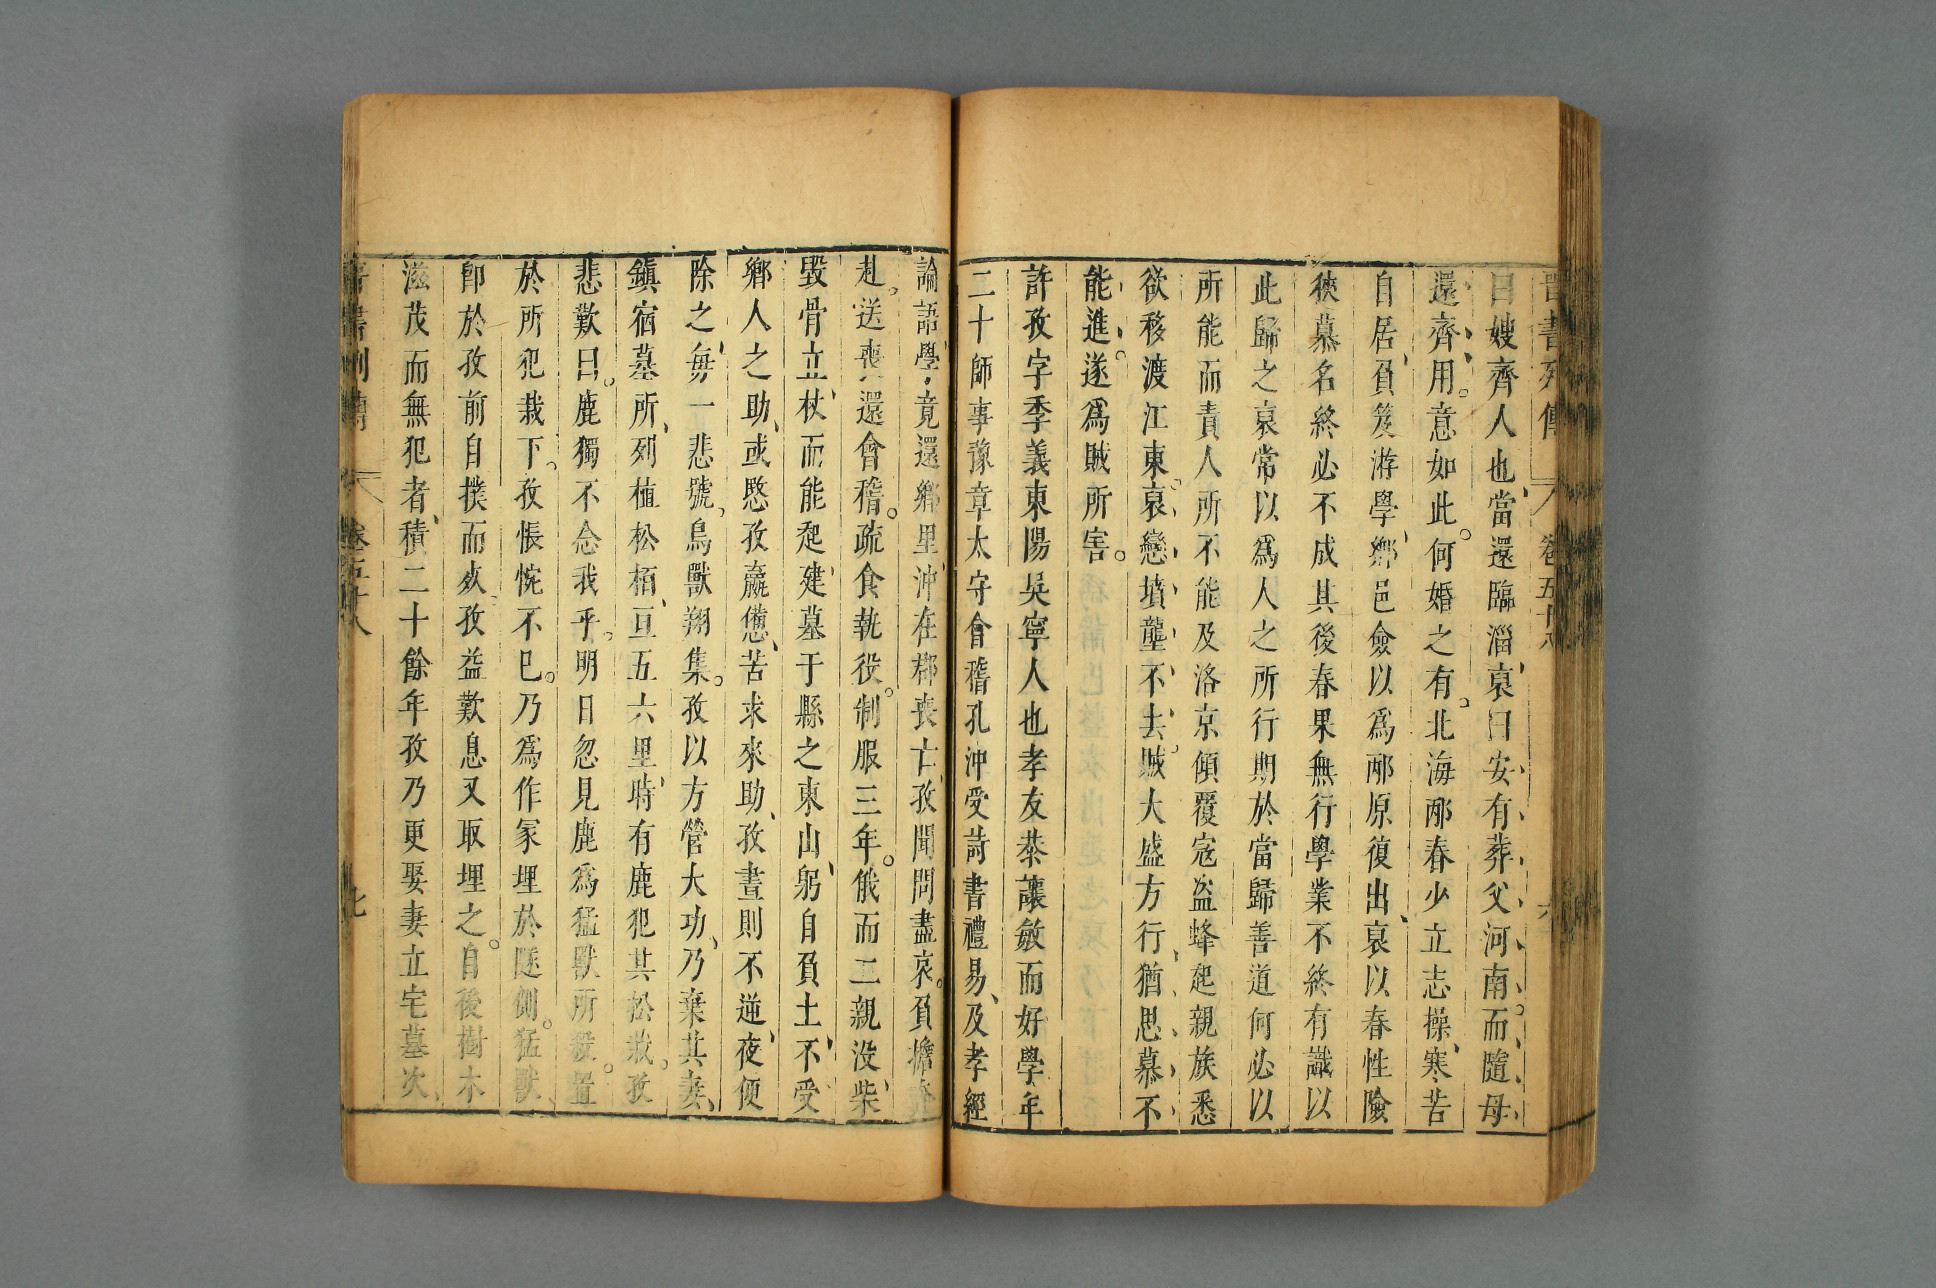 晉書列傳 卷五十八 六
曰嫂齊人也當還臨淄裒曰安有葬父河南而隨母
還齊用意如此何婚之有北海邴春少立志操寒苦
自居負笈游學鄉邑僉以爲邴原復出裒以春性險
狹慕名終必不成其後春果無行學業不終有識以
此歸之裒常以爲人之所行期於當歸善道何必以
所能而責人所不能及洛京傾覆寇盜蜂起親族悉
欲移渡江東裒戀墳壟不去賊大盛方行猶思慕不
能進遂爲賊所害
許孜字季義東陽吳寧人也孝友恭讓敏而好學年
二十師事豫章太守會稽孔沖受詩書禮易及孝經
論語學竟還鄉里沖在郡喪亡孜聞問盡哀負擔奔
赴送喪還會稽疏食執役制服三年俄而二親沒柴
毀骨立杖而能起建墓于縣之東山躬自負土不受
鄉人之助或愍孜羸憊苦求來助孜晝則不逆夜便
除之每一悲號鳥獸翔集孜以方營大功乃棄其妻
鎮宿墓所列植松栢亘五六里時有鹿犯其松栽孜
悲歎曰鹿獨不念我乎明日忽見鹿爲猛獸所殺置
於所犯栽下孜悵惋不已乃爲作冢埋於隧側猛獸
卽於孜前自撲而死孜益歎息又取埋之自後樹木
滋茂而無犯者積二十餘年孜乃更娶妻立宅墓次
晉書列傳 卷五十八 七